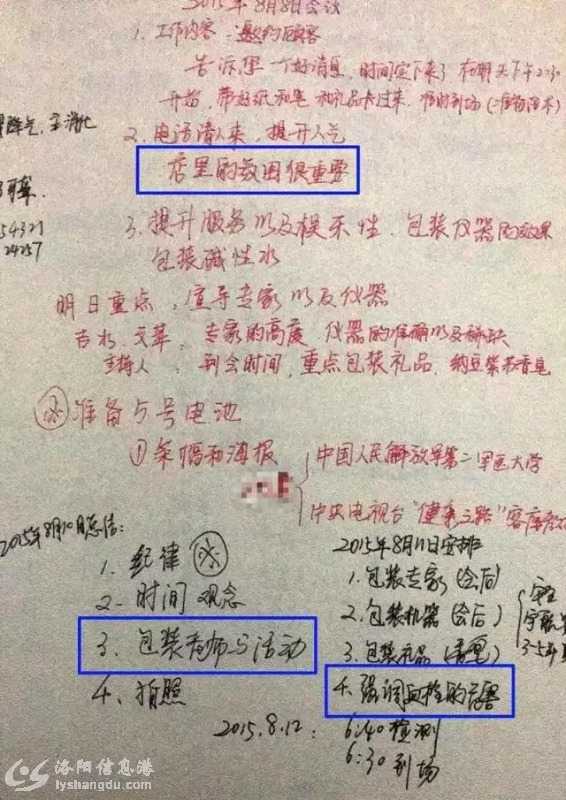 2015年8月8日会议
1. 工作内容：邀约顾客
告诉您一个好消息，时间定下来了 在明天下午2:30
开始，带好纸和笔 和礼品卡过来，准时到场
2. 电话请人来，提升人气
店里的氛围很重要
3. 提升服务以及娱乐性，包装仪器的效果
包装碱性水
54321
24257
明日重点，宣导专家以及仪器
专家的高度 仪器的准确以及稀缺
主持人， 到会时间，重点包装礼品，纳豆
准备5号电池
①条幅和海报
中国人民解放军第二军医大学
中央电视台"健康之路"客座
2015年8月10日总结：
1. 纪律
2. 时间观念
3. 包装老师与活动
4. 拍照
2015年8月11日安排
1. 包装专家（会后）
2. 包装机器（会后）
3. 包装礼品
4. 强调血栓的危害
2015.8.12：
6:40 检测
6:30 到场
洛阳信息港
lyshangdu.com